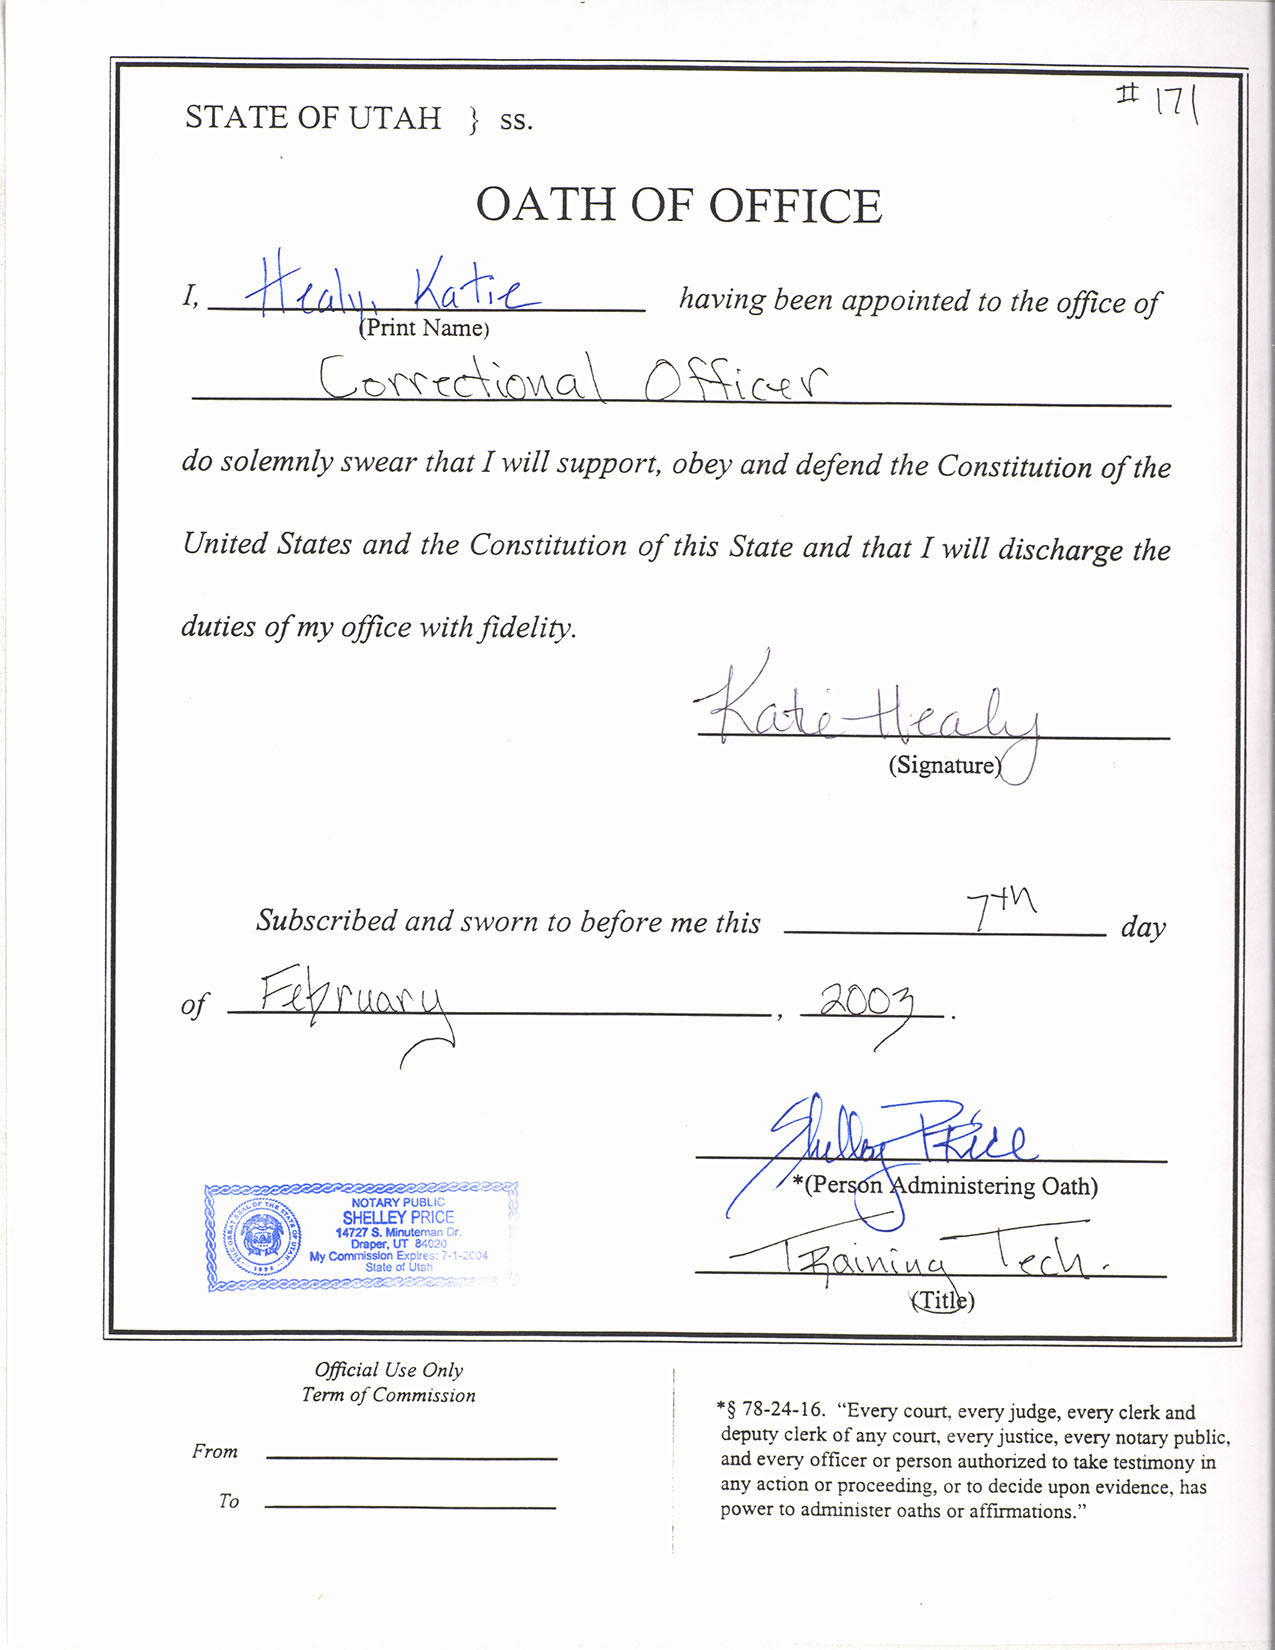 # 171
STATE OF UTAH } ss.
OATH OF OFFICE
I, Healy, Katie having been appointed to the office of
(Print Name)
Correctional Officer
do solemnly swear that I will support, obey and defend the Constitution of the
United States and the Constitution of this State and that I will discharge the
duties of my office with fidelity.
Katie Healy
(Signature)
Subscribed and sworn to before me this 7th day
of February, 2003.
Shelley Price
*(Person Administering Oath)
Training Tech.
(Title)
NOTARY PUBLIC
SHELLEY PRICE
14727 S. Minuteman Dr.
Draper, UT 84020
My Commission Expires: 7-1-2004
State of Utah
Official Use Only
Term of Commission
From
To
*§ 78-24-16. “Every court, every judge, every clerk and
deputy clerk of any court, every justice, every notary public,
and every officer or person authorized to take testimony in
any action or proceeding, or to decide upon evidence, has
power to administer oaths or affirmations.”